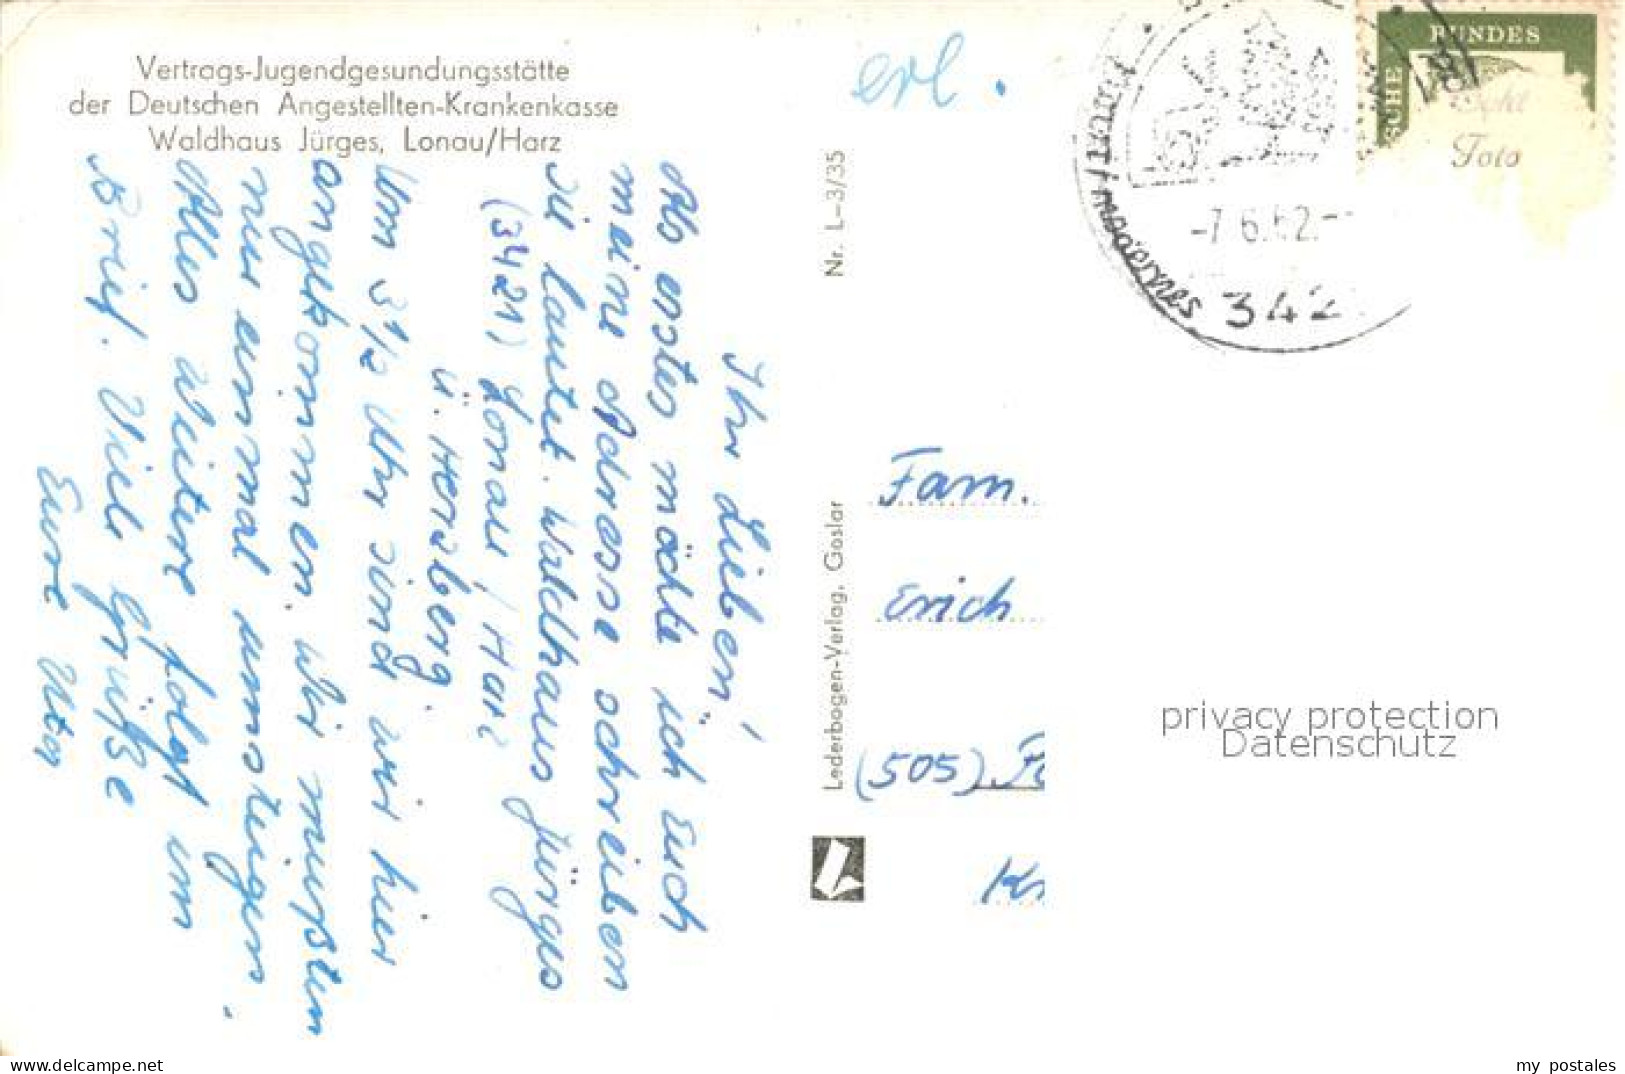 Vertrags-Jugendgesundungsstätte
der Deutschen Angestellten-Krankenkasse
Waldhaus Jürges, Lonau/Harz
Ihr Lieben!
Als erstes möchte ich Euch
meine Adresse schreiben
Sie lautet. Waldhaus Jürges
(3421) Lonau / Harz
ü. Herzberg.
Um 3 1/2 Uhr sind wir hier
angekommen. Wir mußten
nur einmal umsteigen.
Alles Weitere folgt im
Brief. Viele Grüße
Eure Uta
Nr. L-3/35
Lederbogen-Verlag, Goslar
erl.
BUNDES
-7.6.62.-
342
modernes
Foto
Fam.
Erich
(505)
privacy protection
Datenschutz
delcampe.net
my_postales